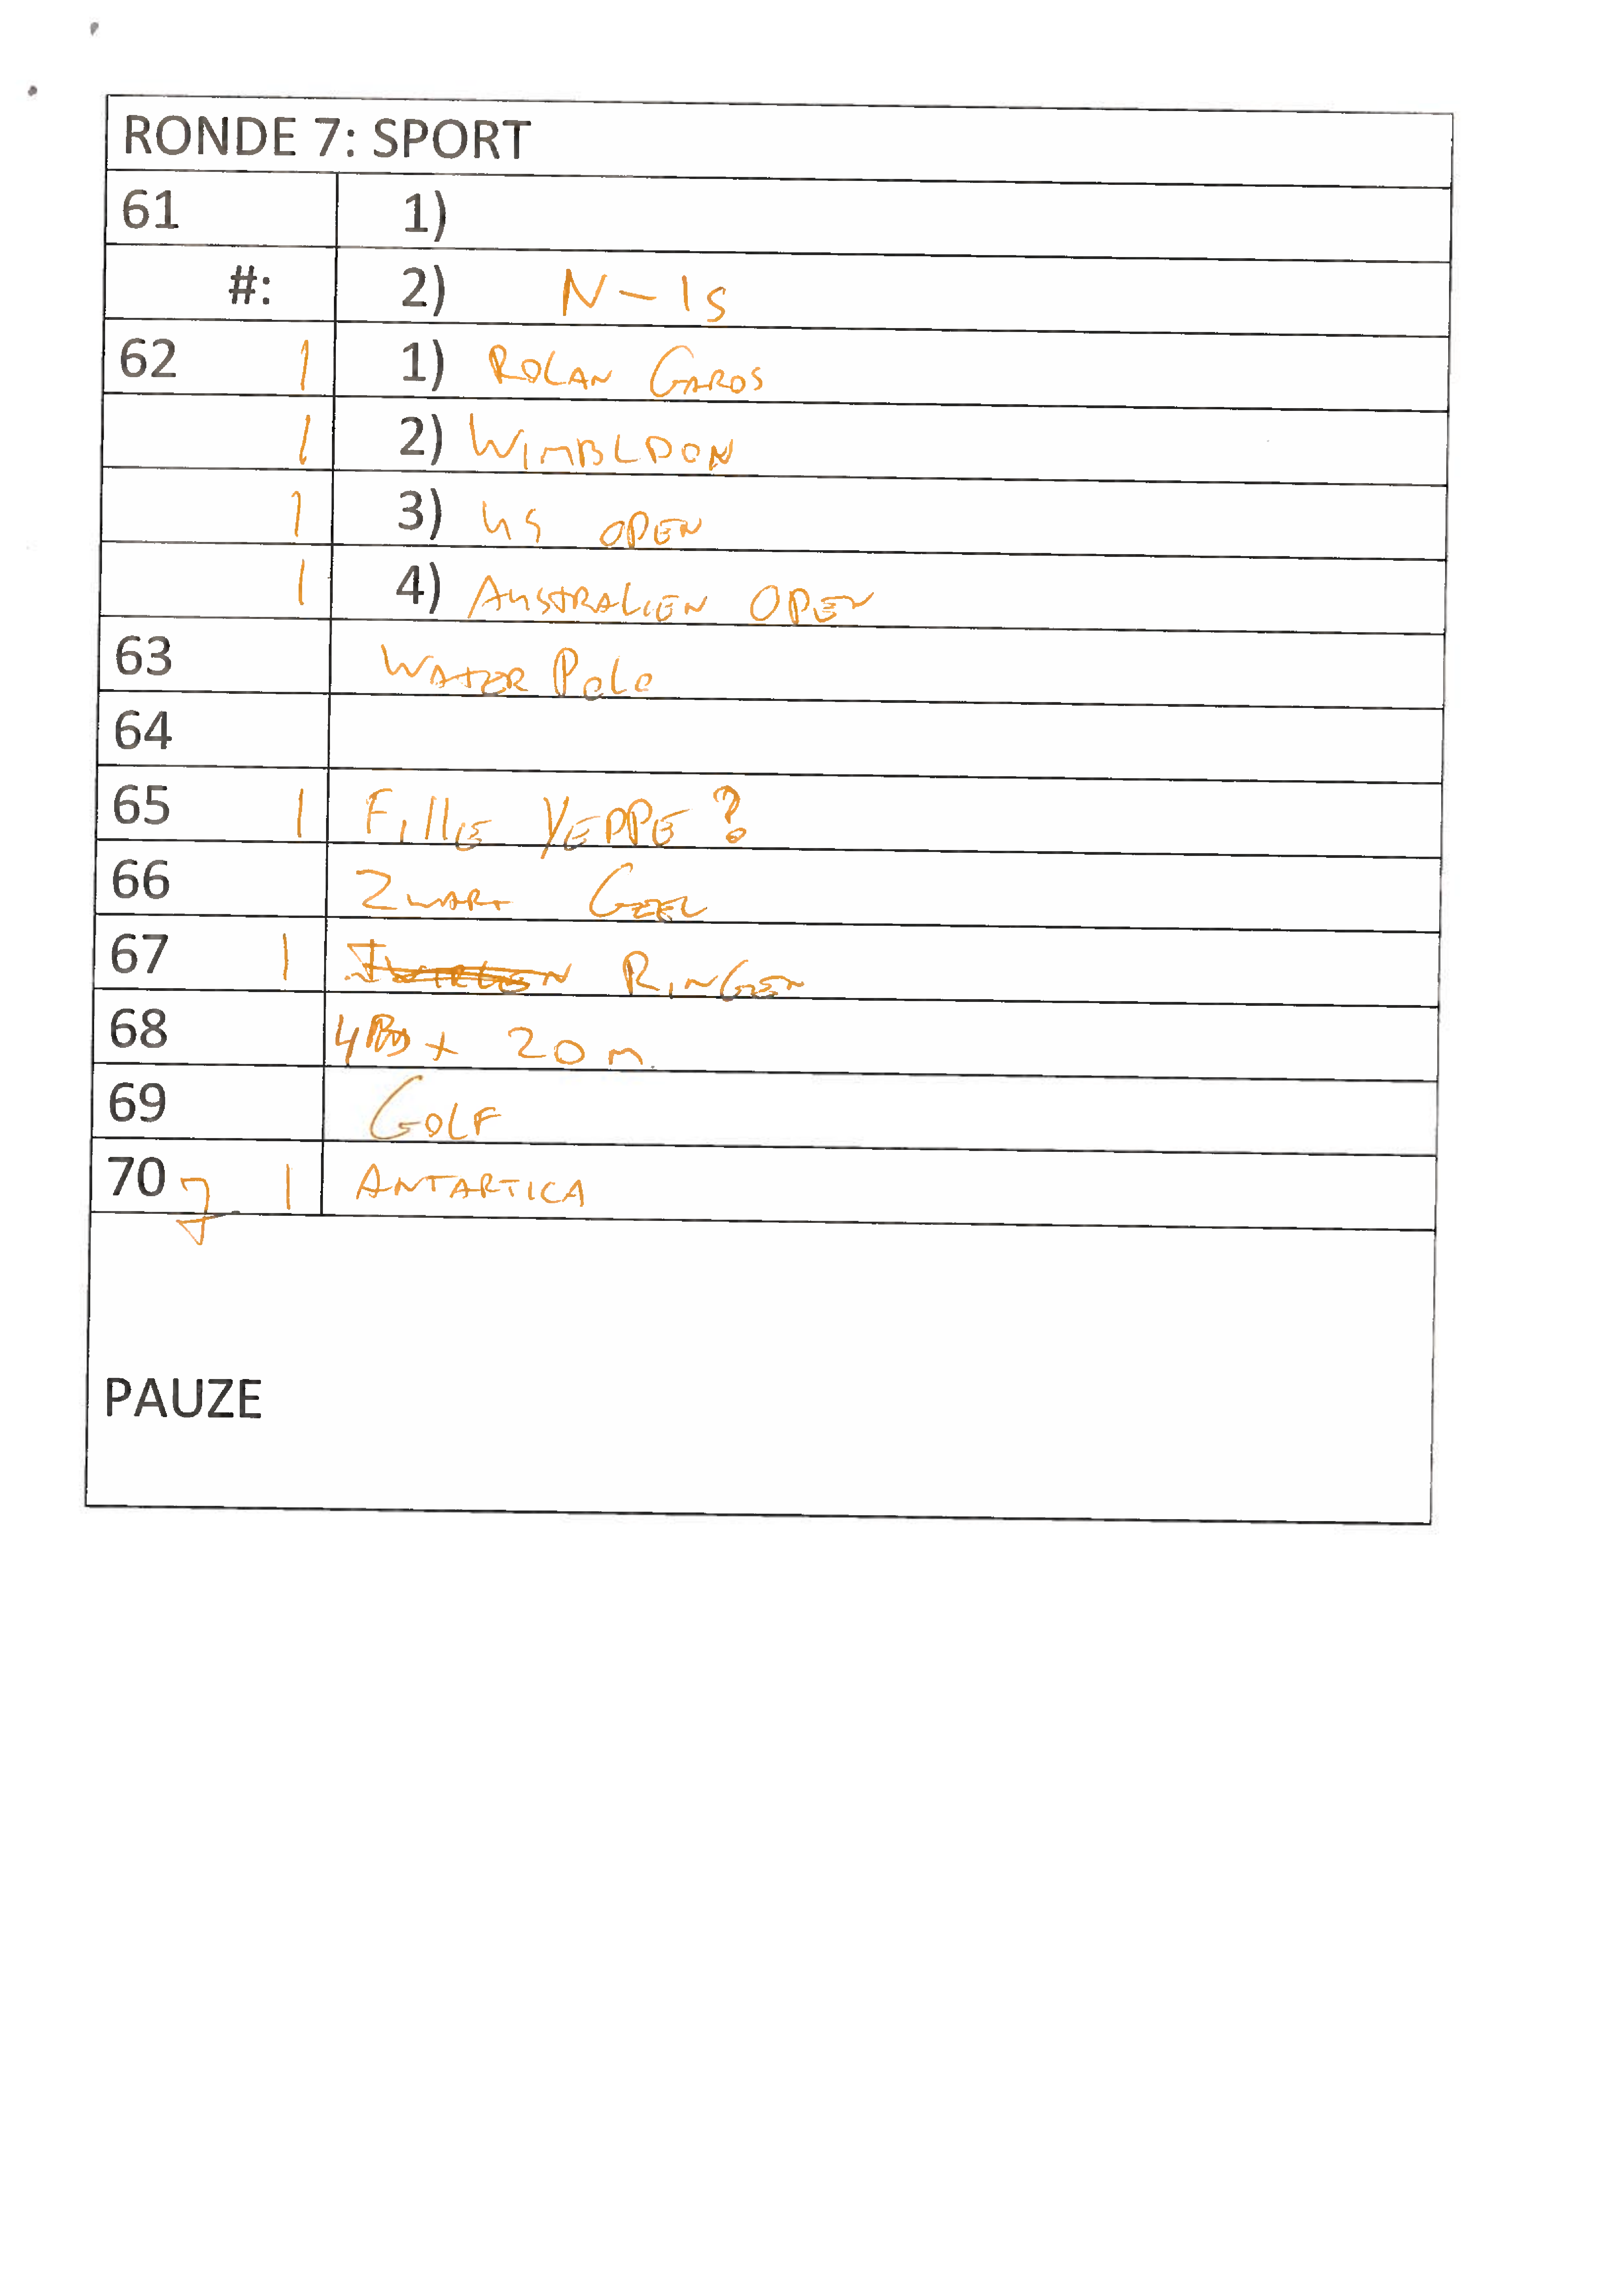 RONDE 7: SPORT
61 1)
#: 2) N-IS
62 1 1) ROLAN GAROS
1 2) WIMBLDON
1 3) US OPEN
1 4) AUSTRALIEN OPEN
63 WATER POLO
64
65 1 FILLE YEPPE?
66 ZWART GEEL
67 1 RINGEN
68 + 20 m.
69 GOLF
70 7 1 ANTARTICA
PAUZE